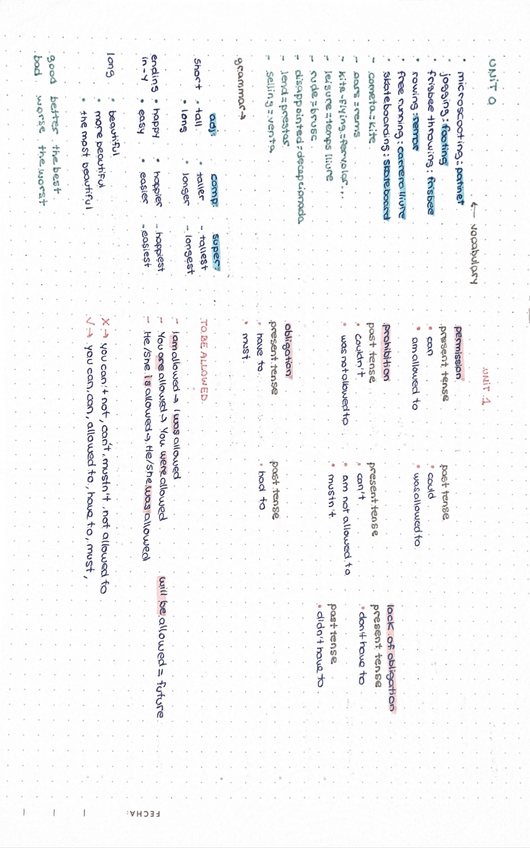 UNIT 0
← vocabulary
• microscooting: patinet
• jogging: footing
• frisbee throwing: frisbee
• rowing: remar
• free running: carrera lliure
• skateboarding: skateboard
- cometa = kite
- oars = rems
- kite-flying = fer volar...
- leisure = temps lliure
- rude = brusc
- disappointed = decepcionada
- lend = prestar
- selling = venta
grammar →
adj: comp: super:
short • tall • taller - tallest
• long • longer - longest
ending • happy • happier - happiest
in -y • easy • easier - easiest
long • beautiful
• more beautiful
• the most beautiful
good better the best
bad worse the worst
UNIT 1
permission
present tense past tense
• can • could
• am allowed to • was allowed to
prohibition
past tense present tense
• couldn't • can't
• was not allowed to • am not allowed to
• mustn't
lack of obligation
present tense
• don't have to
past tense
• didn't have to
obligation
present tense past tense
• have to • had to
• must
TO BE ALLOWED
- I am allowed → I was allowed
- You are allowed → You were allowed
- He/she is allowed → He/she was allowed
will be allowed = future
X → you can't not, can't, mustn't, not allowed to
√ → you can, can, allowed to, have to, must,
FECHA: